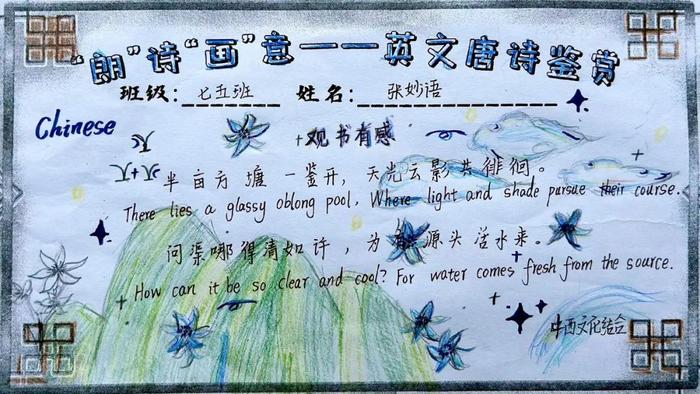 “朗”诗“画”意——英文唐诗鉴赏
班级：七五班 姓名：张妙语
Chinese
观书有感
半亩方塘一鉴开，天光云影共徘徊。
There lies a glassy oblong pool, Where light and shade pursue their course.
问渠哪得清如许，为有源头活水来。
How can it be so clear and cool? For water comes fresh from the source.
中西文化结合